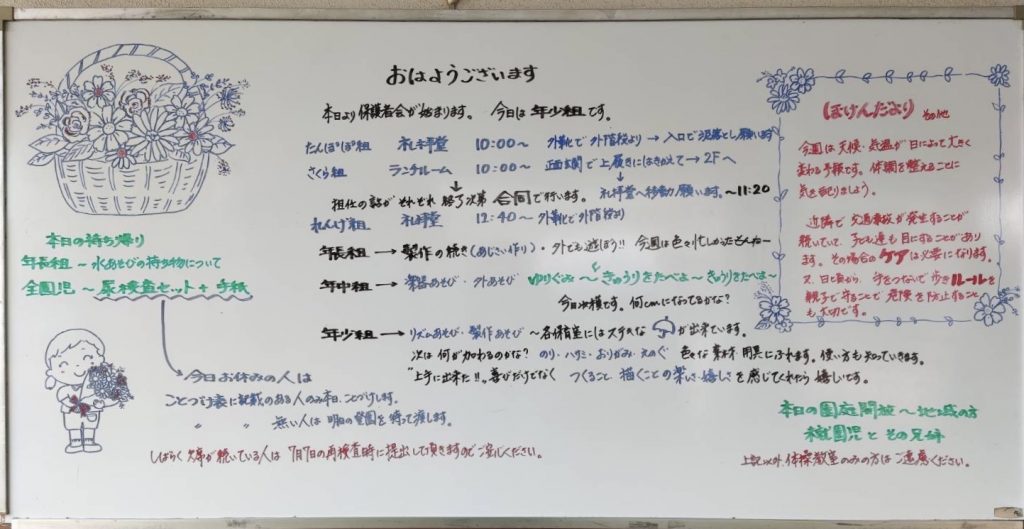 おはようございます
本日より保護者会が始まります。 今日は年少組です。
たんぽぽ組 礼拝堂 10:00～ 外靴で外階段より→入口で消毒お願います
さくら組 ランチルーム 10:00～ 正面玄関で上履きにはきかえて→2Fへ
担任の話がそれぞれ終了次第 合同で行います。 礼拝堂へ移動願います。～11:20
れんげ組 礼拝堂 12:40～ 外靴で外階段より
年長組→製作の続き(あじさい作り)・外でも遊ぼう!! 今週は色々忙しかったもんねー
年中組→ 外あそび ゆりぐみ～きゅうりをたべよ～きゅうりをたべよ～
今日収穫です。何cmになってるかな?
年少組→リズムあそび・製作あそび～各保育室にはステキな が出来ています。
次は何が加わるのかな? のり・ハサミ・おりがみ・えのぐ 色々な素材・用具にふれます。使い方も知っていきます。
"上手に出来た!!"喜びだけでなく つくること・描くことの楽しさ・嬉しさを感じてくれたら嬉しいです。
本日の持ち帰り
年長組～水あそびの持ち物について
全園児～尿検査セット+手紙
今日お休みの人は
ことづけ表に記載のある人のみ本日、ことづけします。
〃 〃 無い人は明日の登園を待って渡します。
しばらく欠席が続いている人は 7月7日の再検査時に提出して頂きますのでご安心ください。
ほけんだより その他
今週は天候・気温が日によって大きく
変わる予報です。体調を整えることに
気を配りましょう。
近隣で交通事故が発生することが
続いていて、子ども達も目にすることがあり
ます。その場合のケアは必要になります。
又、日頃から、手をつないで歩きルールを
親子で守ることで危険を防止すること
も大切です。
本日の園庭開放～地域の方
在園児とその兄姉
上記以外、体操教室のみの方はご遠慮ください。